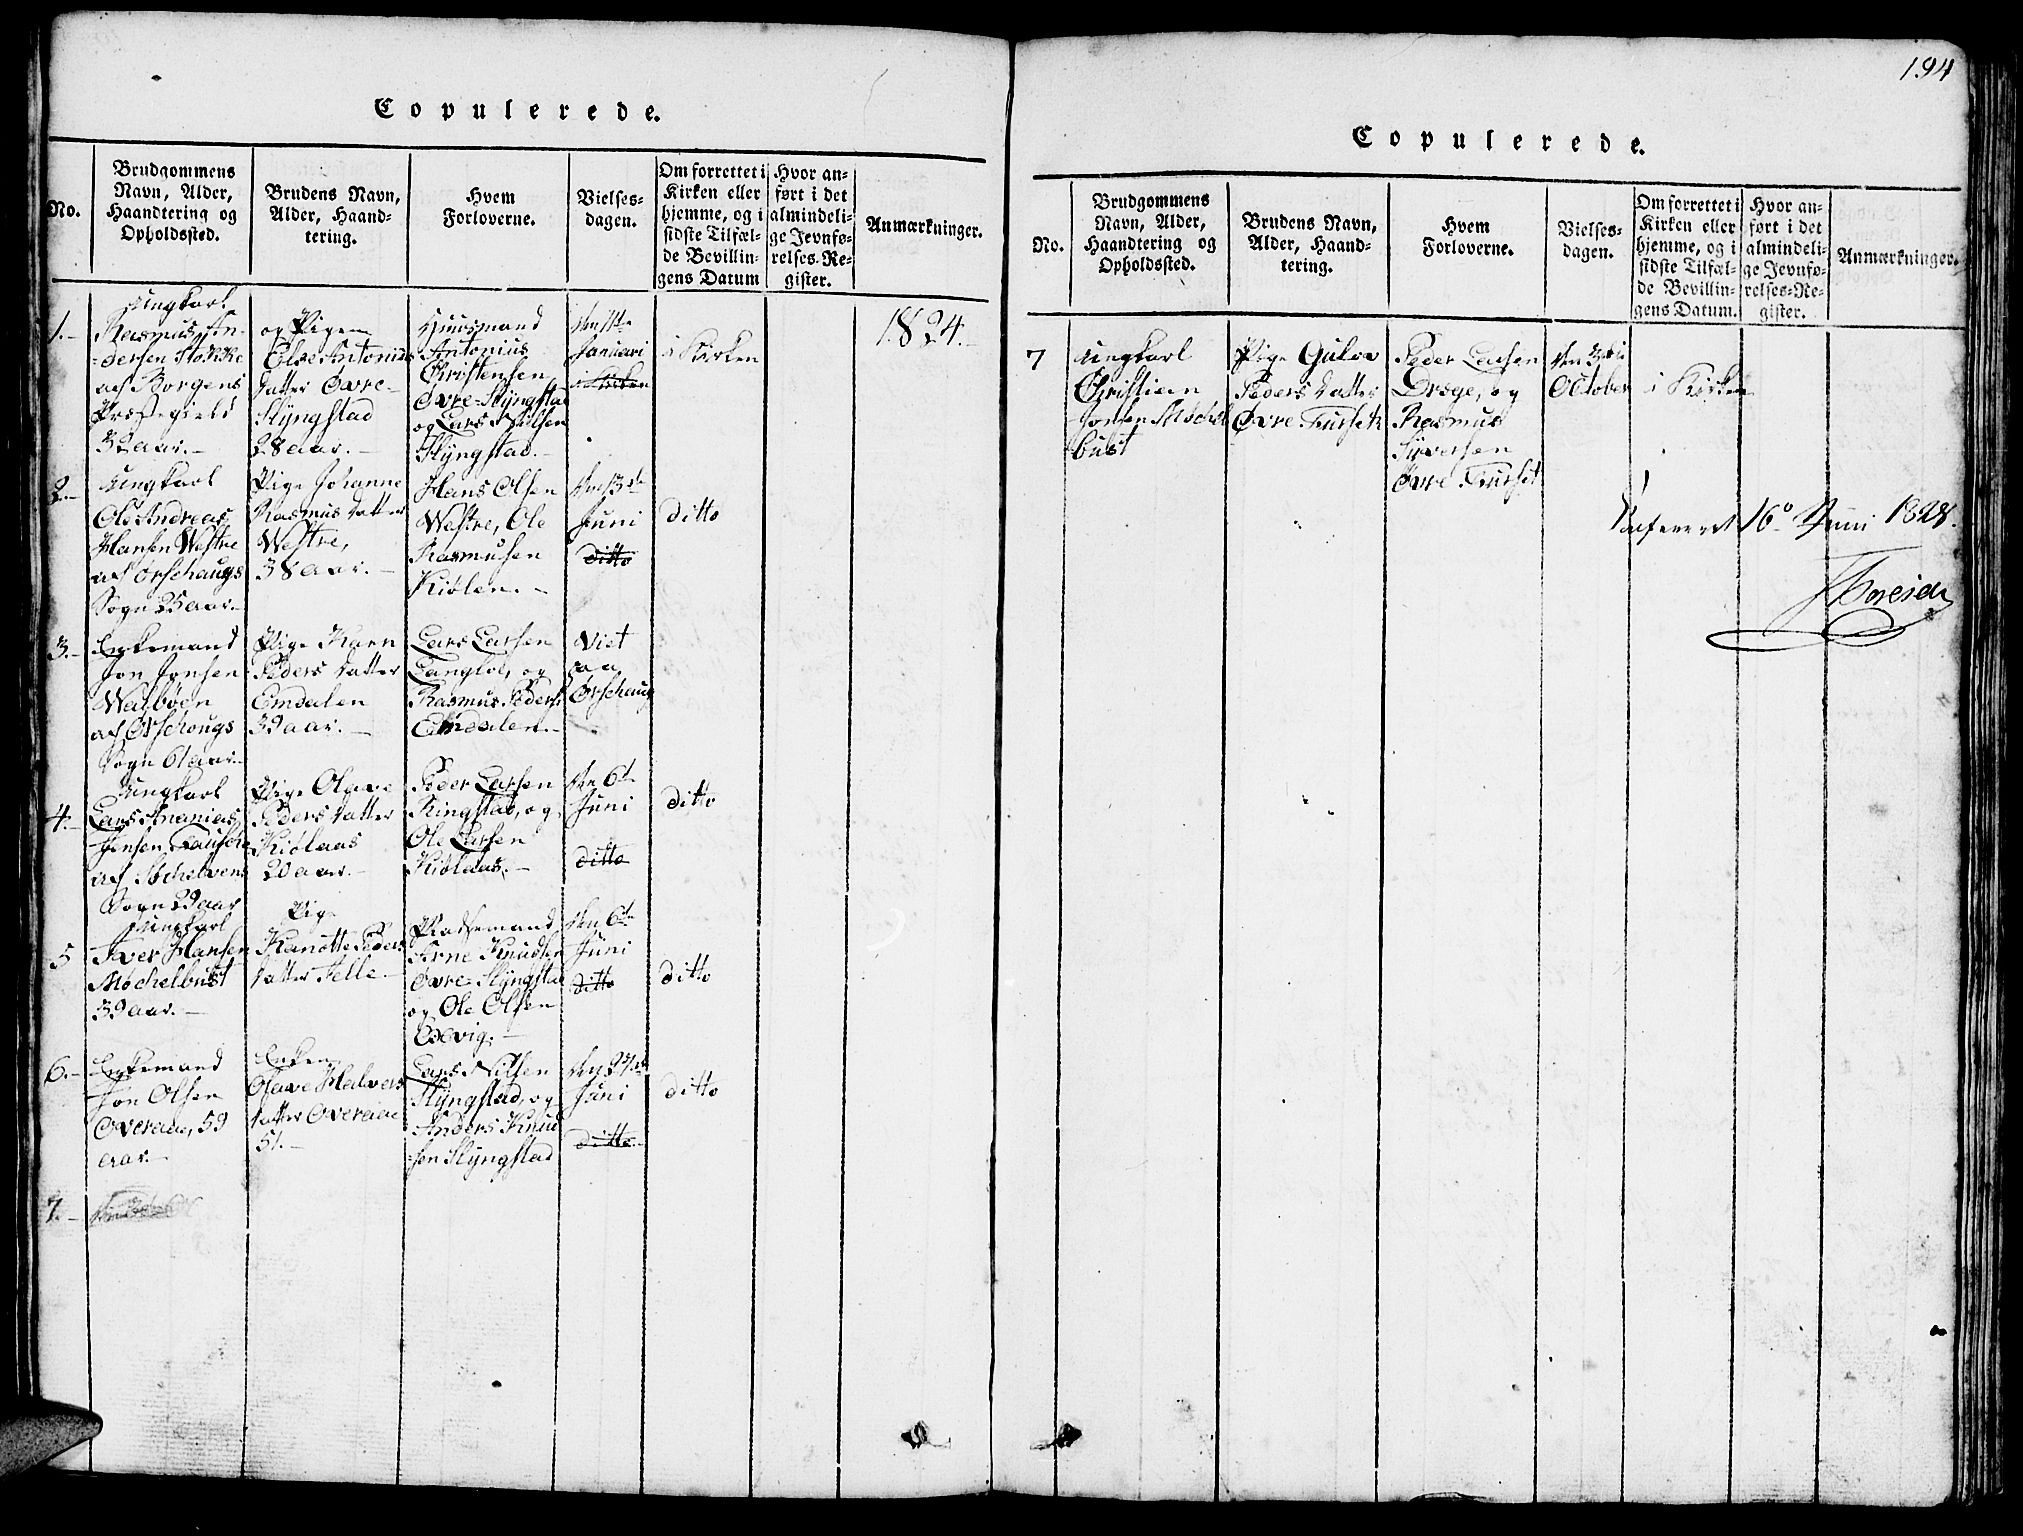 Copulerede.
No.
Brudgommens
Navn, Alder,
Haandtering og
Opholdssted.
Brudens Navn,
Alder, Haand-
tering.
Hvem
Forloverne.
Vielses-
dagen.
Om forrettet i
Kirken eller
hjemme, og i
sidste Tilfæl-
de Bevillin-
gens Datum
Hvor an-
ført i det
almindeli-
ge Jevnfø-
relses-Re-
gister.
Anmærkninger.
1824.
1.
Ungkarl
Rasmus An-
dersen Stokke
af Borgens
Præstegield
32 aar.
og Pigen
Antonius
datter Øvre-
Slyngstad
28 aar.
Huusmand
Antonius
Christensen
Øvre-Slyngstad
og Lars Nilsen
Slyngstad.
den 11te
Januari
i Kirken
i Kirken
2.
Ungkarl
Ole Andreas
Hansen Westre
af Ørschaugs
Sogn 25 aar.
Pige Johanne
Rasmus datter
Westre,
38 aar.
Hans Olsen
Westre, Ole
Rasmusen
Kiølen.
den 13de
Juni
ditto
ditto
3.
Enkemand
Jon Jonsen
Welbøen
af Ørschougs
Sogn 61 aar.
Pige Karn
Peders datter
Emdalen
39 aar.
Lars Larsen
Langloe, og
Rasmus Peders
Emdalen.
Viet
paa
Ørschaug
4.
Ungkarl
Lars Ananias
Jensen
af
Sogn 29 aar
Pige Olave
Peders datter
Kiølaas
20 aar.
Peder Larsen
Ringstad, og
Ole Larsen
Kiølaas.
den 6te
Juni
ditto
ditto
5
Ungkarl
Iver Hansen
Mochelbust
39 aar.
Pige
Peders
datter Telle
Pladsemand
Arne Knudsen
Øvre-Slyngstad
og Ole Olsen
Oxvig.
den 6te
Juni
ditto
ditto
6.
Enkemand
Jon Olsen
Overaae, 59
aar.
Enken
Olave Halvers
datter Overaae
51.
Lars Nilsen
Slyngstad, og
Anders Knud
sen Slyngstad
den 27de
Juni
ditto
ditto
7.
194
Copulerede.
No.
Brudgommens
Navn, Alder,
Haandtering og
Opholdssted.
Brudens Navn,
Alder, Haand-
tering.
Hvem
Forloverne.
Vielses-
dagen.
Om forrettet i
Kirken eller
hjemme, og i
sidste Tilfæl-
de Bevillin-
gens Datum.
Hvor an-
ført i det
almindeli-
ge Jevnfø-
relses-Re-
gister.
Anmærkninger.
7
Ungkarl
Christian
Jonsen Mochel
bust
Pige Gulov
Peders datter
Øvre Furseth
Peder Larsen
Drøge, og
Rasmus
Syversen
Øvre Furset
den 3die
October
i Kirken
16 Juni 1828.